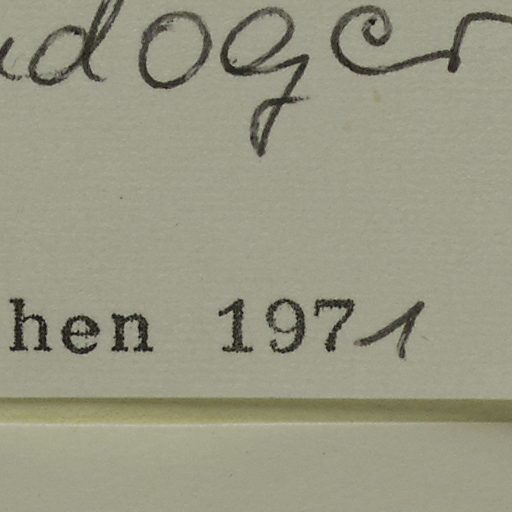 udoger
hen 1971